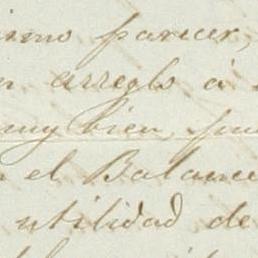 ismo parecer,
n arreglo á
muy bien, pue
n el Balance
utilidad de